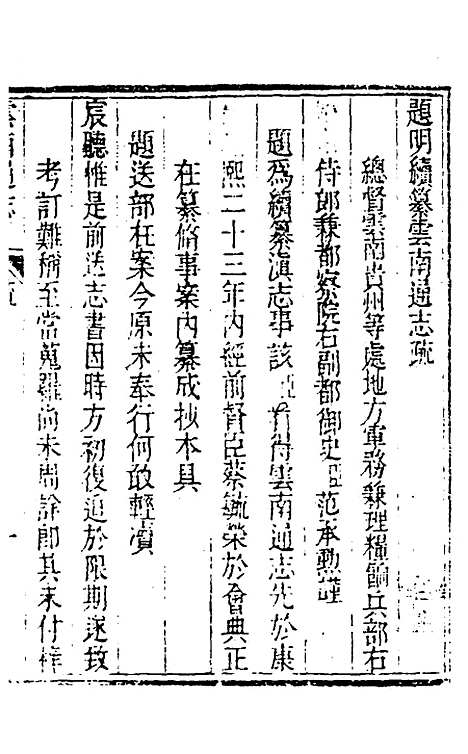 題明續纂雲南通志疏
總督雲南貴州等處地方軍務兼理糧餉兵部右
侍郎兼都察院右副都御史臣范承勳謹
題爲續纂滇志事該臣看得雲南通志先於康
熙二十三年內經前督臣蔡毓榮於會典正
在纂脩事案內纂成抄本具
題送部在案今原未奉行何敢輕瀆
宸聽惟是前送志書因時方初復迫於限期遂致
考訂難稱至當蒐羅尚未周詳郎其未付梓